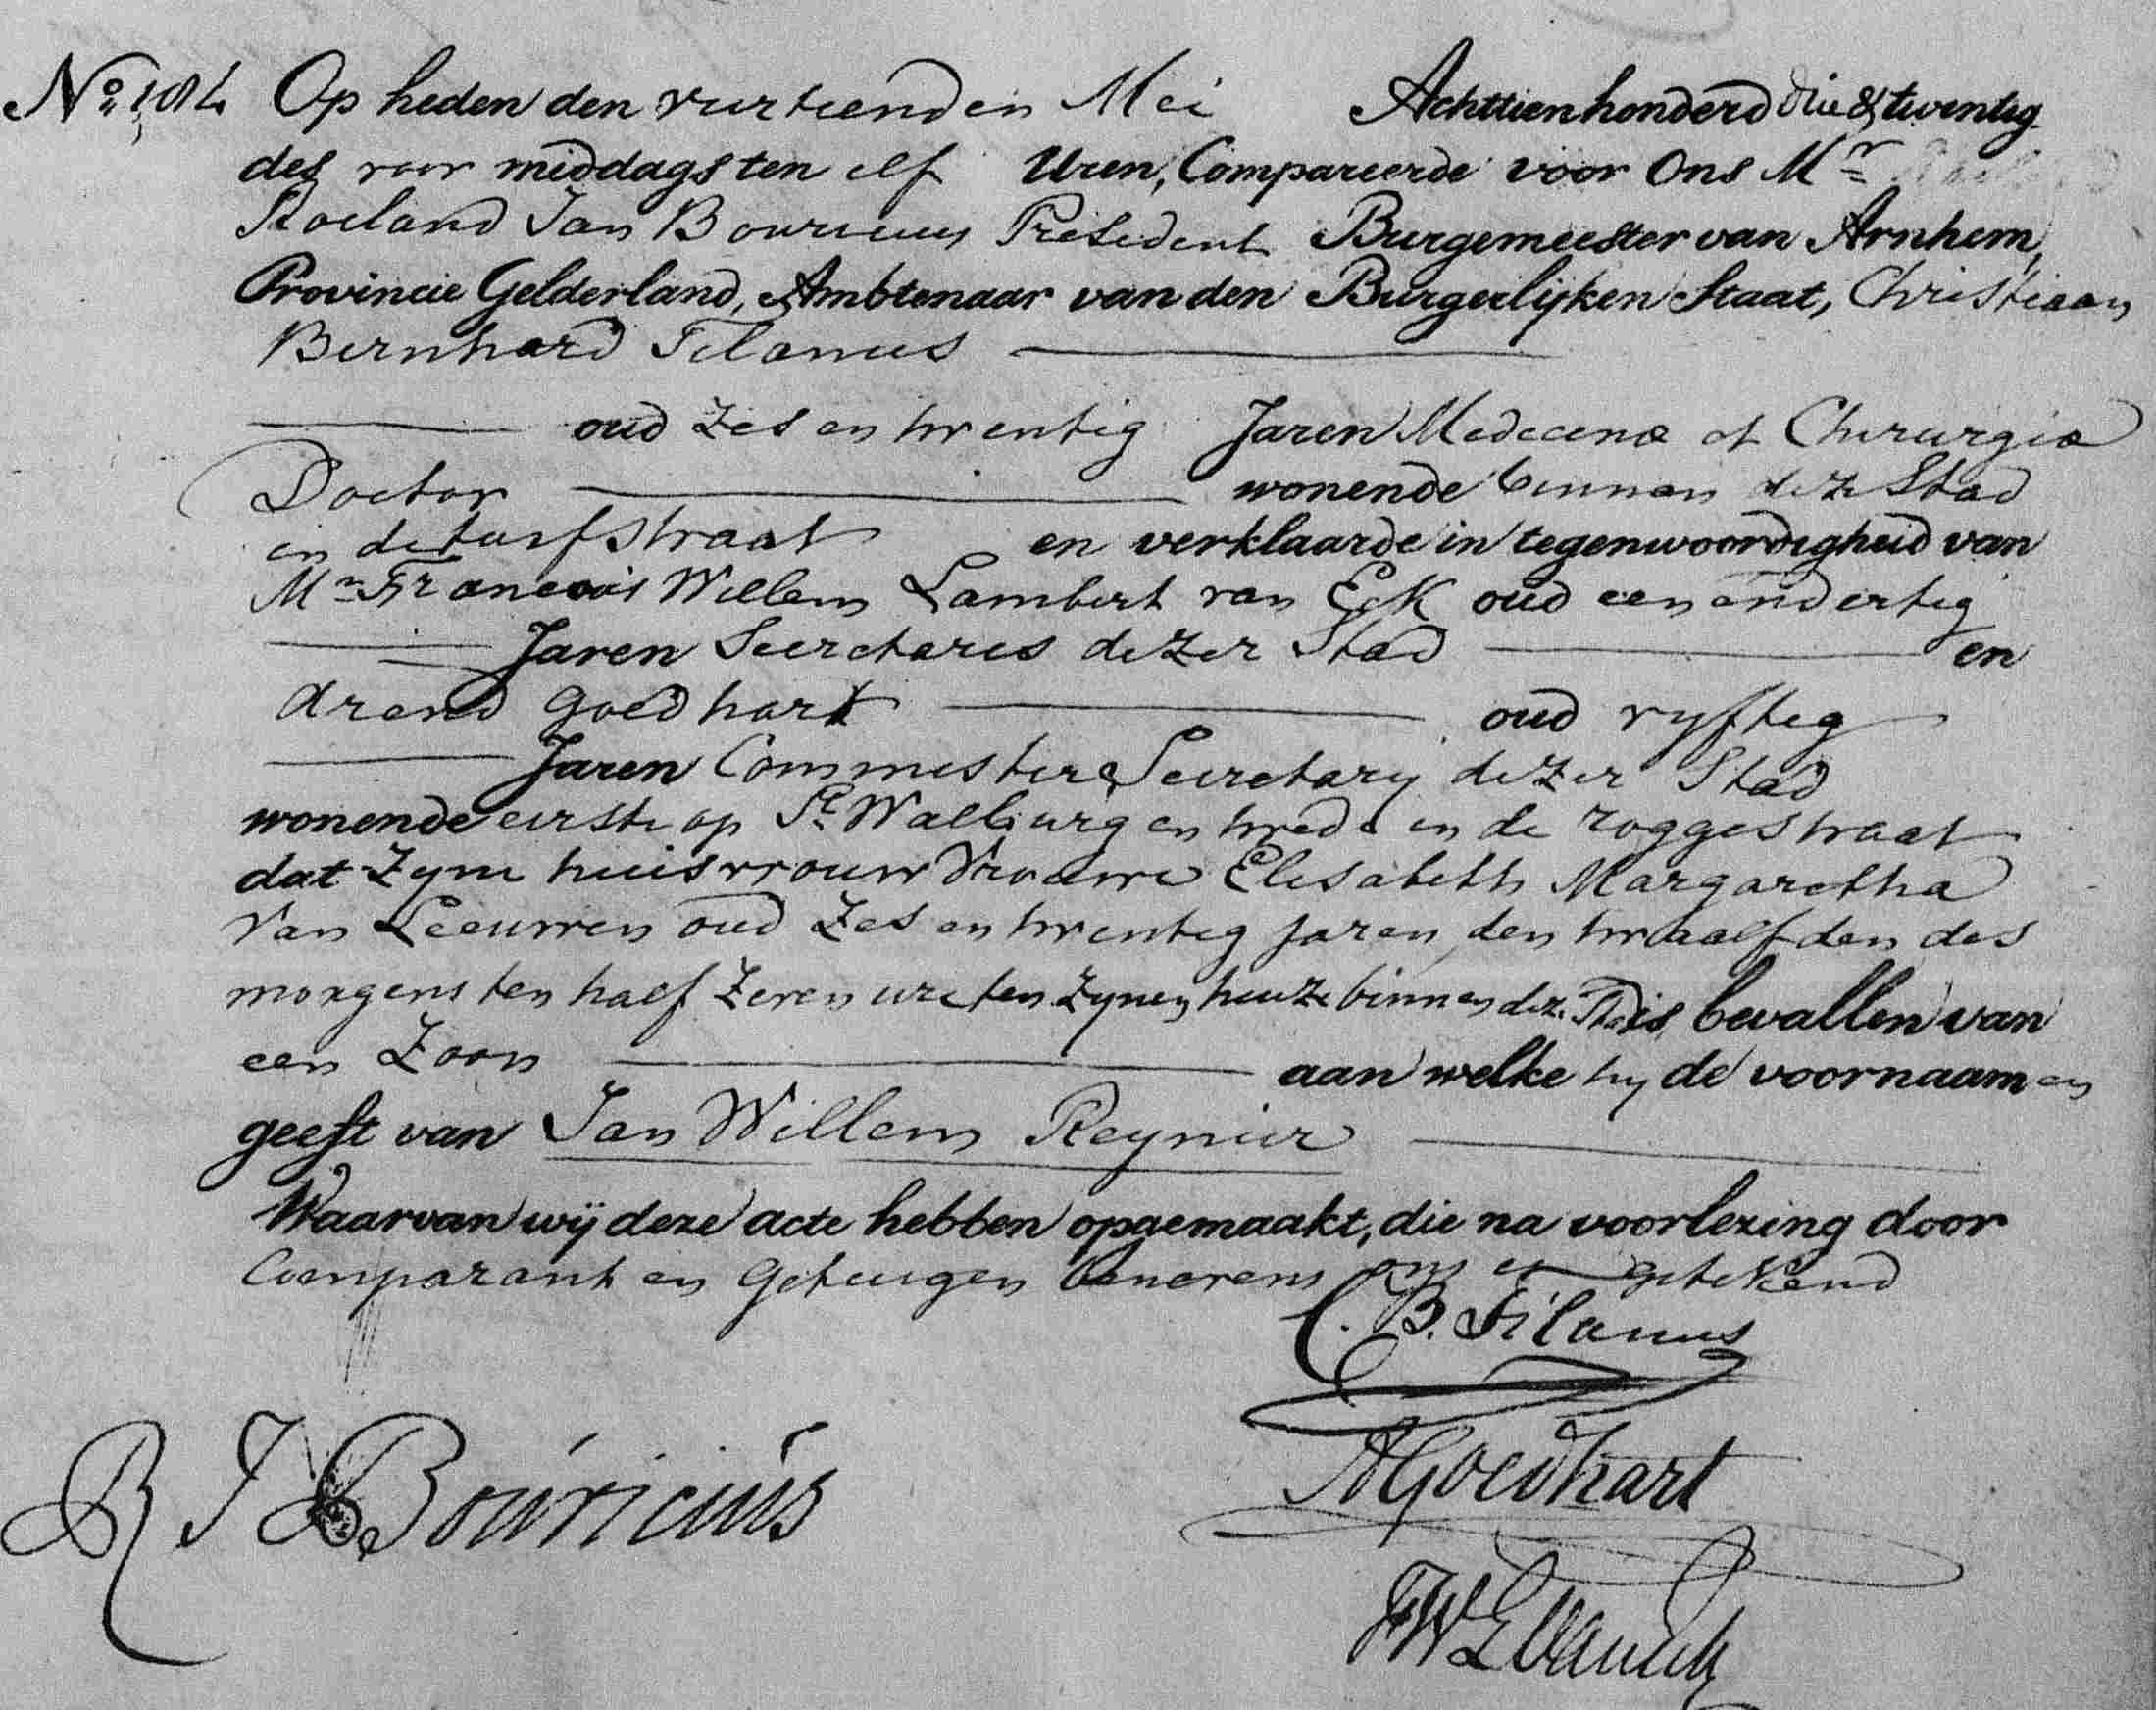 No. 184 Op heden den veertienden Mei Achttienhonderd drie & twentig
des voor middags ten elf Uren, Compareerde voor Ons Mr
Roeland Jan Bouricius President Burgemeester van Arnhem,
Provincie Gelderland, Ambtenaar van den Burgerlijken Staat, Christiaan
Bernhard Tilanus
oud Zes en twentig Jaren Medecinæ et Chirurgiæ
Doctor wonende binnen deze Stad
in de turfstraat en verklaarde in tegenwoordigheid van
Mr Francois Willem Lambert van Eck oud een en dertig
Jaren Secretaris dezer Stad en
Arend Goedhart oud vyftig
Jaren Commies ter Secretary dezer Stad
wonende eerste op St. Walburg en twede in de roggestraat
dat Zyne huisvrouw Vrouwe Elisabeth Margaretha
Van Leeuwen oud Zes en twentig jaren, den twaalfden des
morgens ten half Zeven ure ten Zynen huize binnen deze Stad is bevallen van
een Zoon aan welke hy de voornaamen
geeft van Jan Willem Reynier
Waarvan wij deze acte hebben opgemaakt, die na voorlezing door
Comparant en Getuigen benevens ons is getekend
C. B. Tilanus
A Goedhart
R J Bouricius
FWL van Eck